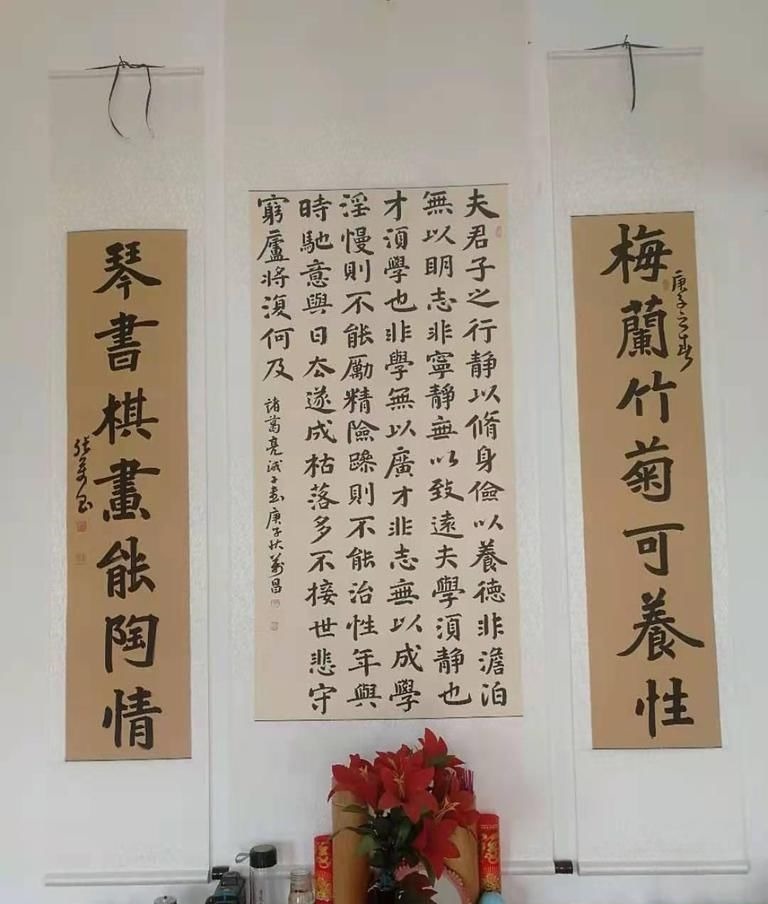 梅蘭竹菊可養性
庚子之春
夫君子之行靜以脩身儉以養德非澹泊
無以明志非寧靜無以致遠夫學須靜也
才須學也非學無以廣才非志無以成學
淫慢則不能勵精險躁則不能治性年與
時馳意與日去遂成枯落多不接世悲守
窮廬將復何及
諸葛亮诫子書庚子秋萬昌
琴書棋畫能陶情
張萬昌